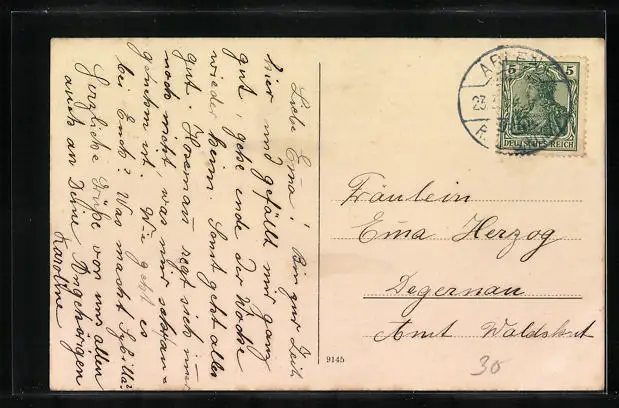 Liebe Ema! Bin zur Zeit
hier und gefällt mir ganz
gut, gehe ende der Woche
wieder heim. Sonst geht alles
gut. regt sich immer
noch nicht, was mir seltau-
genehm ist. Wie geht es
bei Euch? Was macht
Herzliche Grüße von uns allen
auch an Deine Angehörigen
Karoline
ARLEN
23
5 5
DEUTSCHES REICH
Fräulein
Ema Herzog
Degernau
Amt Waldshut
9145
30